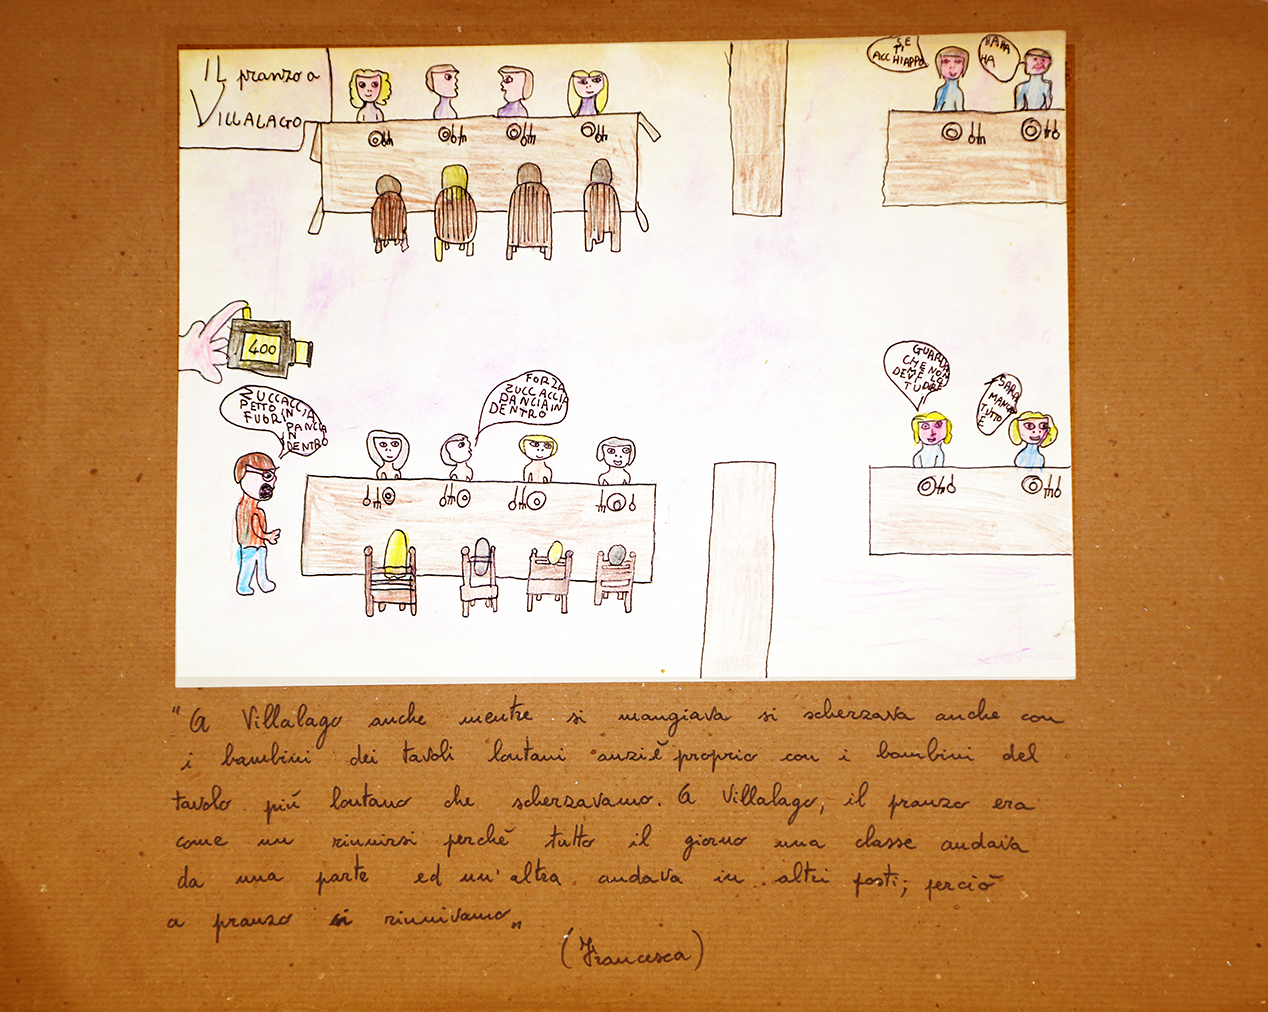 IL pranzo a
VILLALAGO
SE
TI
ACCHIAPPO
HAHA
HA
400
ZUCCACCIA
PETTO IN
FUORI PANCIA
IN
DENTRO
FORZA
ZUCCACCIA
PANCIA IN
DENTRO
GUARDA
CHE NON
DEVE LA
SARA
MANGIA
TUTTO
E
"A Villalago anche mentre si mangiava si scherzava anche con
i bambini dei tavoli lontani anzi è proprio con i bambini del
tavolo più lontano che scherzavamo. A Villalago, il pranzo era
come un riunirsi perchè tutto il giorno una classe andava
da una parte ed un'altra andava in altri posti; perciò
a pranzo si riunivamo"
(Francesca)